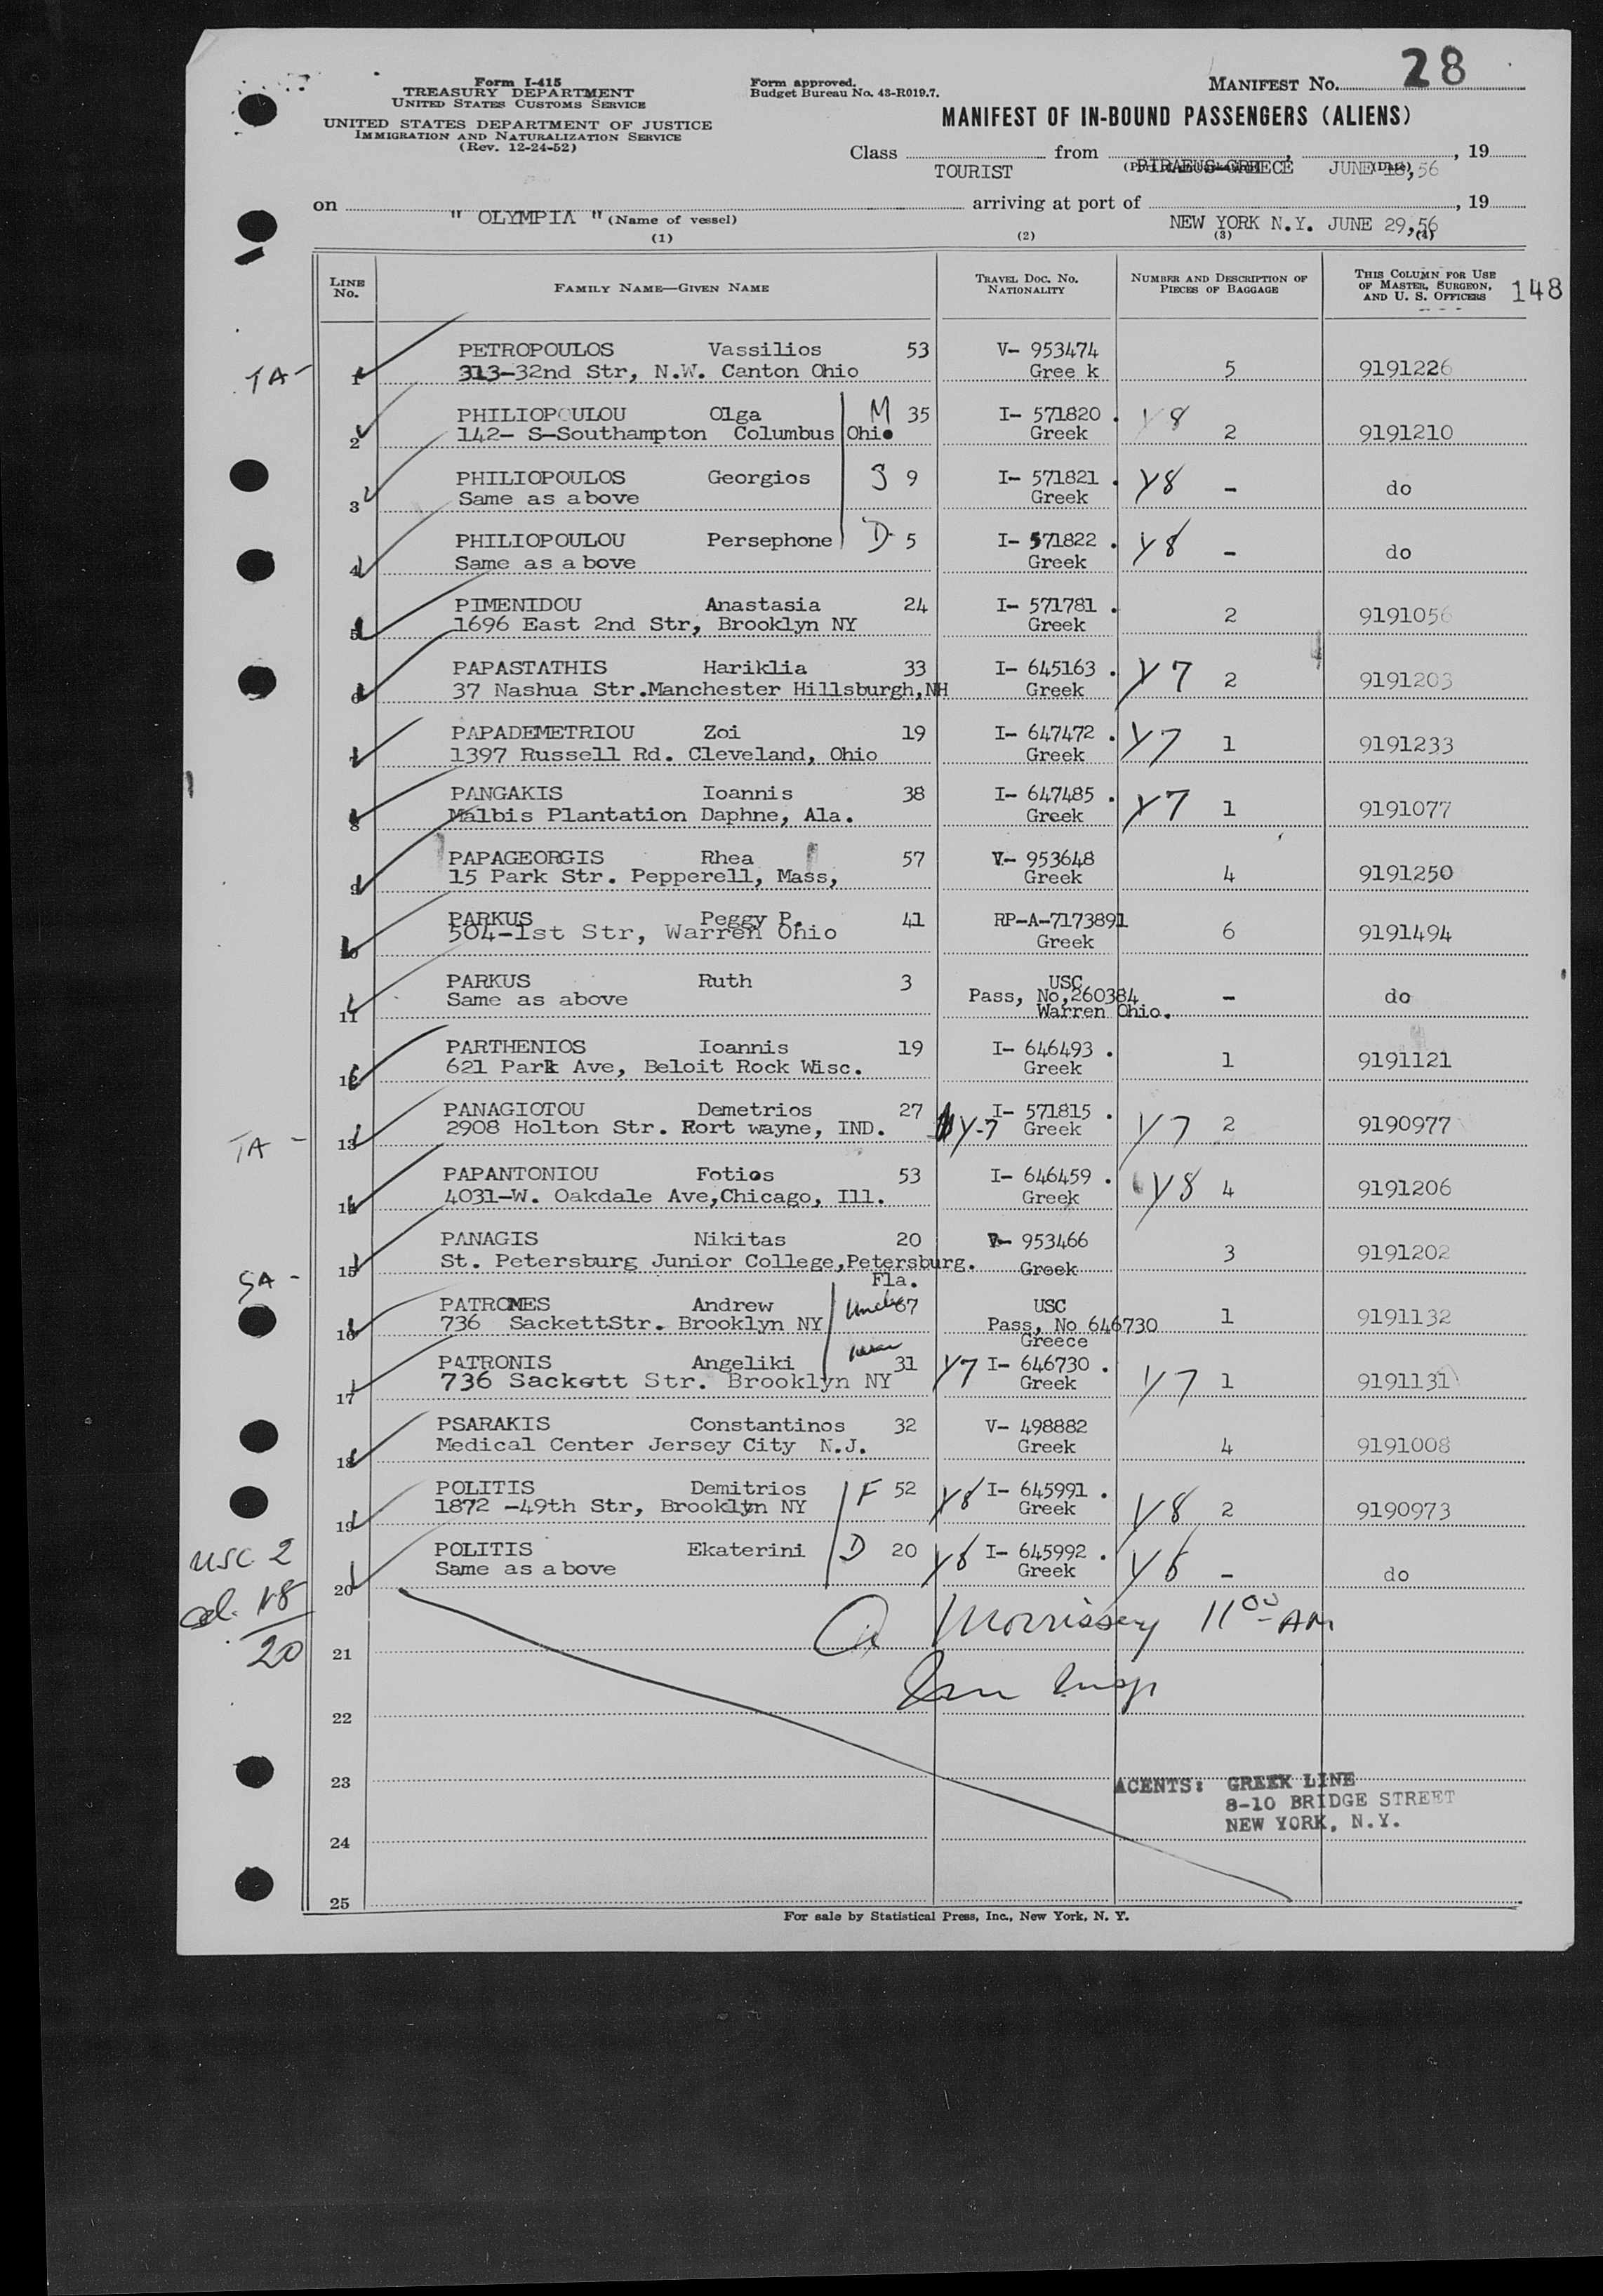 28
Form I-415
TREASURY DEPARTMENT
UNITED STATES CUSTOMS SERVICE
UNITED STATES DEPARTMENT OF JUSTICE
IMMIGRATION AND NATURALIZATION SERVICE
(Rev. 12-24-52)
Form approved.
Budget Bureau No. 43-R019.7.
MANIFEST No.
MANIFEST OF IN-BOUND PASSENGERS (ALIENS)
Class TOURIST from PIRAEUS GREECE JUNE 18, 56 , 19
(Date)
on " OLYMPIA " (Name of vessel) arriving at port of NEW YORK N.Y. JUNE 29,56 , 19
(1) (2) (3) (4)
LINE No. FAMILY NAME—GIVEN NAME TRAVEL DOC. No. NATIONALITY NUMBER AND DESCRIPTION OF PIECES OF BAGGAGE THIS COLUMN FOR USE OF MASTER, SURGEON, AND U. S. OFFICERS 148
PETROPOULOS Vassilios 53 V- 953474
TA- 1 313-32nd Str, N.W. Canton Ohio Gree k 5 9191226
PHILIOPOULOU Olga M 35 I- 571820 . Y8
2 142- S-Southampton Columbus Ohio Greek 2 9191210
PHILIOPOULOS Georgios S 9 I- 571821 . Y8
3 Same as above Greek - do
PHILIOPOULOU Persephone D 5 I- 571822 . Y8
4 Same as above Greek - do
PIMENIDOU Anastasia 24 I- 571781 .
5 1696 East 2nd Str, Brooklyn NY Greek 2 9191056
PAPASTATHIS Hariklia 33 I- 645163 . Y7
6 37 Nashua Str.Manchester Hillsburgh,NH Greek 2 9191203
PAPADEMETRIOU Zoi 19 I- 647472 . Y7
1397 Russell Rd. Cleveland, Ohio Greek 1 9191233
PANGAKIS Ioannis 38 I- 647485 . Y7
8 Malbis Plantation Daphne, Ala. Greek 1 9191077
PAPAGEORGIS Rhea 57 V- 953648
9 15 Park Str. Pepperell, Mass, Greek 4 9191250
PARKUS Peggy P. 41 RP-A-7173891
10 504-1st Str, Warren Ohio Greek 6 9191494
PARKUS Ruth 3 USC
11 Same as above Pass, No,260384 - do
Warren Ohio.
PARTHENIOS Ioannis 19 I- 646493 .
12 621 Park Ave, Beloit Rock Wisc. Greek 1 9191121
PANAGIOTOU Demetrios 27 I- 571815 .
TA - 13 2908 Holton Str. Fort wayne, IND. Y-7 Greek Y7 2 9190977
PAPANTONIOU Fotios 53 I- 646459 . Y8
14 4031-W. Oakdale Ave,Chicago, Ill. Greek 4 9191206
PANAGIS Nikitas 20 V- 953466
SA - 15 St. Petersburg Junior College,Petersburg. Greek 3 9191202
Fla.
PATROMES Andrew Uncle 67 USC
16 736 SackettStr. Brooklyn NY Pass, No 646730 1 9191132
Greece
PATRONIS Angeliki 31 Y7 I- 646730 .
17 736 Sackett Str. Brooklyn NY Greek Y7 1 9191131
PSARAKIS Constantinos 32 V- 498882
18 Medical Center Jersey City N.J. Greek 4 9191008
POLITIS Demitrios F 52 Y8 I- 645991 .
19 1872 -49th Str, Brooklyn NY Greek Y8 2 9190973
POLITIS Ekaterini D 20 Y8 I- 645992 .
20 Same as above Greek Y8 - do
USC 2
18
20
Morrissey 11 00 AM
21
Imm Insp
22
23
AGENTS: GREEK LINE
8-10 BRIDGE STREET
NEW YORK, N.Y.
24
25
For sale by Statistical Press, Inc., New York, N. Y.